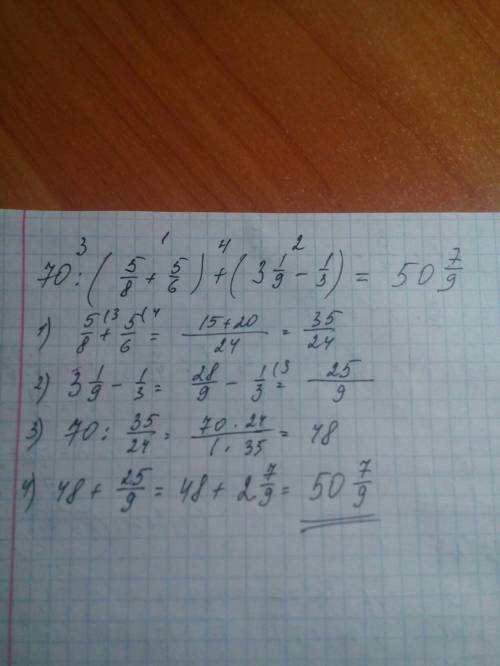 70 : ( 5/8 + 5/6 ) + ( 3 1/9 - 1/3 ) = 50 7/9
1) 5/8 + 5/6 = (15+20)/24 = 35/24
2) 3 1/9 - 1/3 = 28/9 - 1/3 = 25/9
3) 70 : 35/24 = (70 · 24)/(1 · 35) = 48
4) 48 + 25/9 = 48 + 2 7/9 = 50 7/9